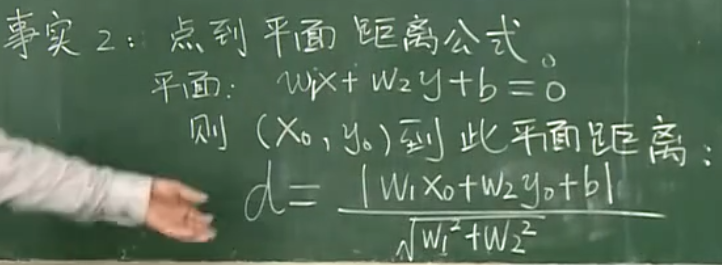 事实2：点到平面距离公式。
平面：w₁x+w₂y+b=0
则(x₀,y₀)到此平面距离：
d=|w₁x₀+w₂y₀+b|/√w₁²+w₂²